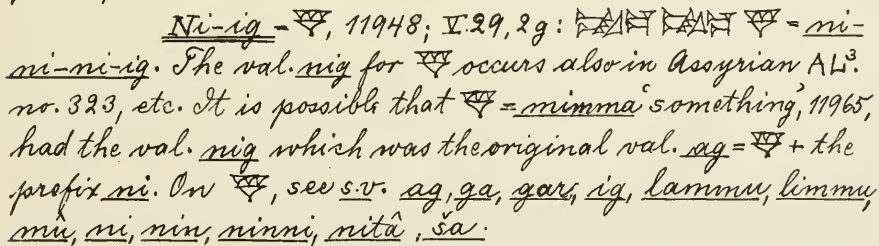 Ni-ig = 𒃻, 11948; V.29, 2g: 𒃻 = ni-
ni-ni-ig. The val. nig for 𒃻 occurs also in Assyrian AL³.
no. 323, etc. It is possible that 𒃻 = mimma 'something', 11965,
had the val. nig which was the original val. ag = 𒃻 + the
prefix ni. On 𒃻, see s.v. ag, ga, gar, ig, lammu, limmu,
mû, ni, nin, ninni, nitâ, ša.